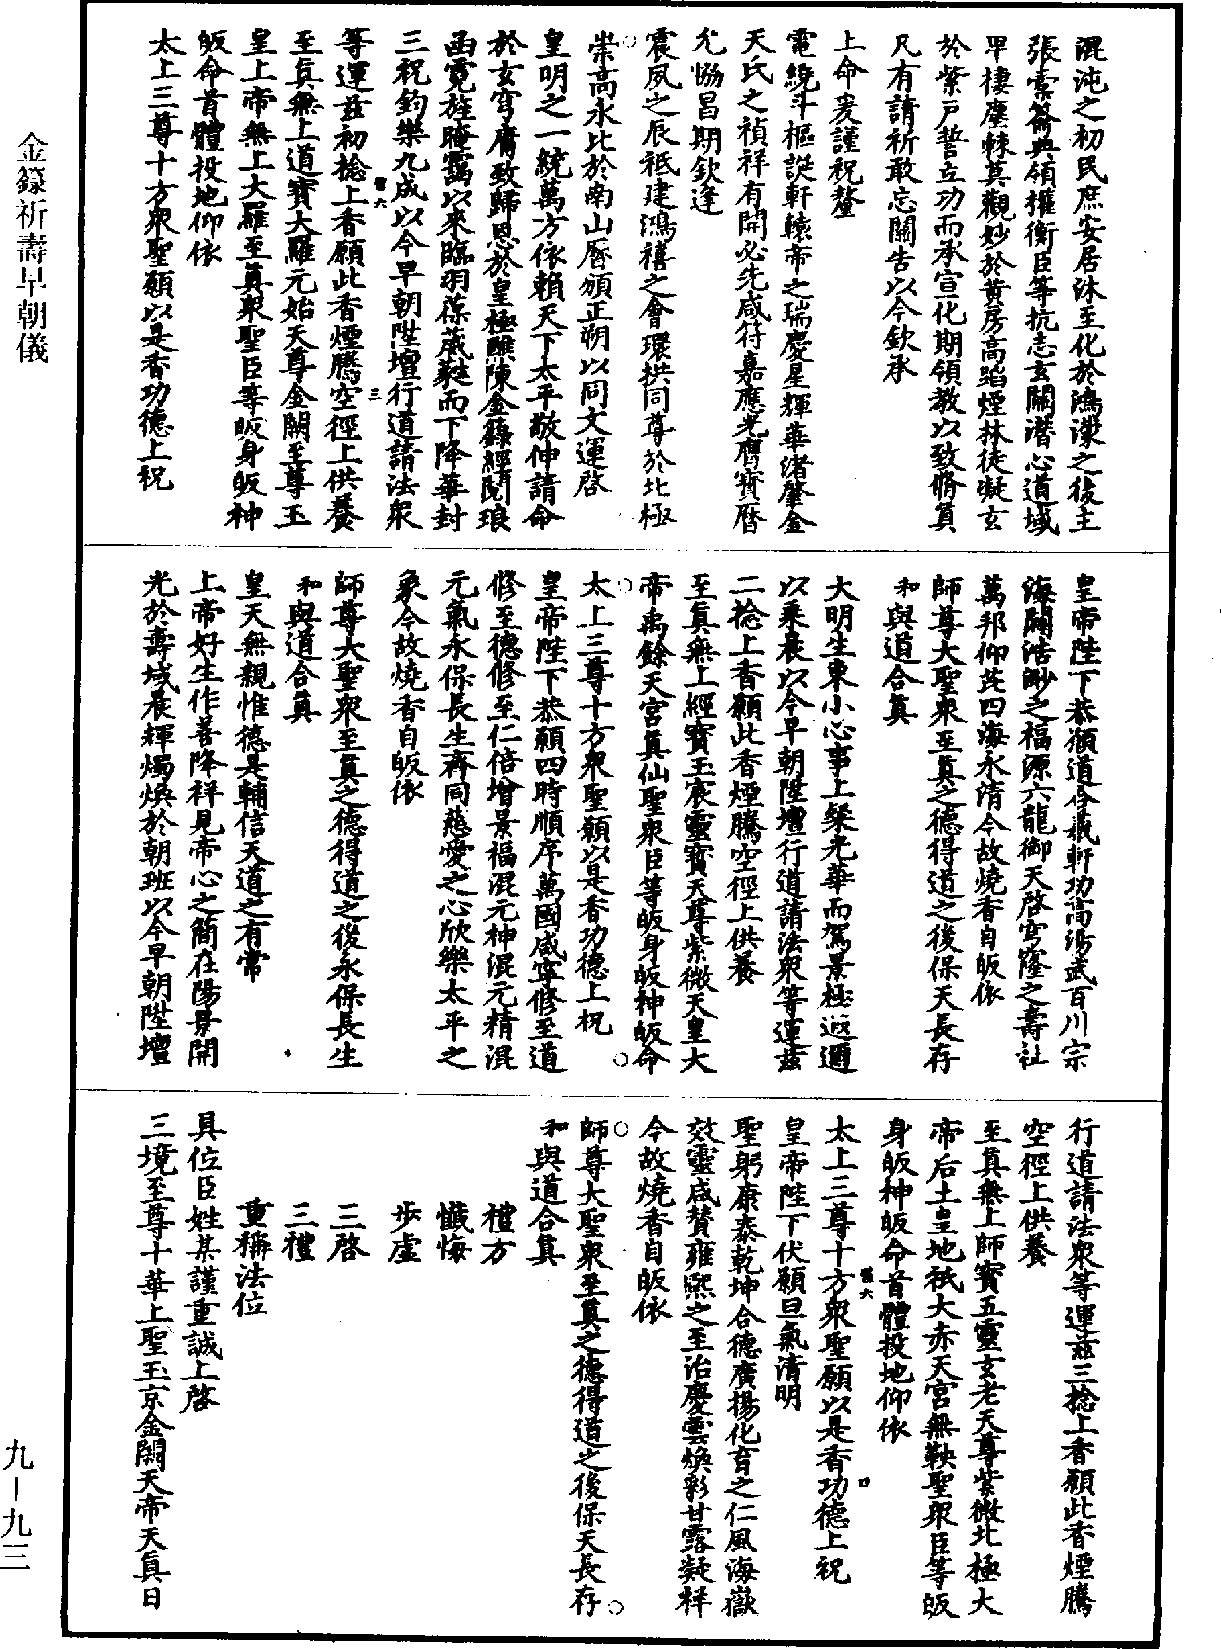 混沌之初民庶安居沐至化於鴻濛之後主
張橐籥典領權衡臣等抗志玄關潛心道域
早棲塵棘莫觀妙於黃房高蹈煙林徒凝玄
於紫戶誓立功而承宣化期領教以致脩真
凡有請祈敢忘關告以今欽承
上命爰謹祝釐
電繞斗樞誕軒轅帝之瑞慶星輝華渚肇金
天氏之禎祥有開必先咸符嘉應光膺寶曆
允協昌期欽逢
震夙之辰祗建鴻禧之會環拱同尊於北極
○崇高永比於南山曆頒正朔以同文運啓
皇明之一統萬方依賴天下太平敬伸請命
於玄穹庸致歸恩於皇極醮陳金籙經閱琅
函霓旌晻靄以來臨羽葆葳蕤而下降華封
三祝鈞樂九成以今早朝陞壇行道請法衆
等運茲初捻上香願此香煙騰空徑上供養
至真無上道寶大羅元始天尊金闕至尊玉
皇上帝無上大羅至真衆聖臣等皈身皈神
皈命首體投地仰依
太上三尊十方衆聖願以是香功德上祝
皇帝陛下恭願道合羲軒功高湯武百川宗
海闢浩眇之福源六龍御天啓穹窿之壽社
萬邦仰芘四海永清今故燒香自皈依
師尊大聖衆至真之德得道之後保天長存
和與道合真
大明生東小心事上粲光華而駕景極遐邇
以乘晨以今早朝陞壇行道請法衆等運茲
二捻上香願此香煙騰空徑上供養
至真無上經寶玉宸靈寶天尊紫微天皇大
帝禹餘天宮真仙聖衆臣等皈身皈神皈命
○太上三尊十方衆聖願以是香功德上祝○
皇帝陛下恭願四時順序萬國咸寧修至道
修至德修至仁倍增景福混元神混元精混
元氣永保長生齊同慈愛之心欣樂太平之
象今故燒香自皈依
師尊大聖衆至真之德得道之後永保長生
和與道合真
皇天無親惟德是輔信天道之有常
上帝好生作善降祥見帝心之簡在陽景開
光於壽域晨輝燭煥於朝班以今早朝陞壇
行道請法衆等運茲三捻上香願此香煙騰
空徑上供養
至真無上師寶五靈玄老天尊紫微北極大
帝后土皇地祇大赤天宮無鞅聖衆臣等皈
身皈神皈命首體投地仰依
太上三尊十方衆聖願以是香功德上祝
皇帝陛下伏願旦氣清明
聖躬康泰乾坤合德廣揚化育之仁風海嶽
效靈咸贊雍熙之至治慶雲煥彩甘露凝祥
今故燒香自皈依
○師尊大聖衆至真之德得道之後保天長存○
和與道合真
禮方
懺悔
步虛
三啓
三禮
重稱法位
具位臣姓某謹重誠上啓
三境至尊十華上聖玉京金闕天帝天真日
金籙祈壽早朝儀
九—九三